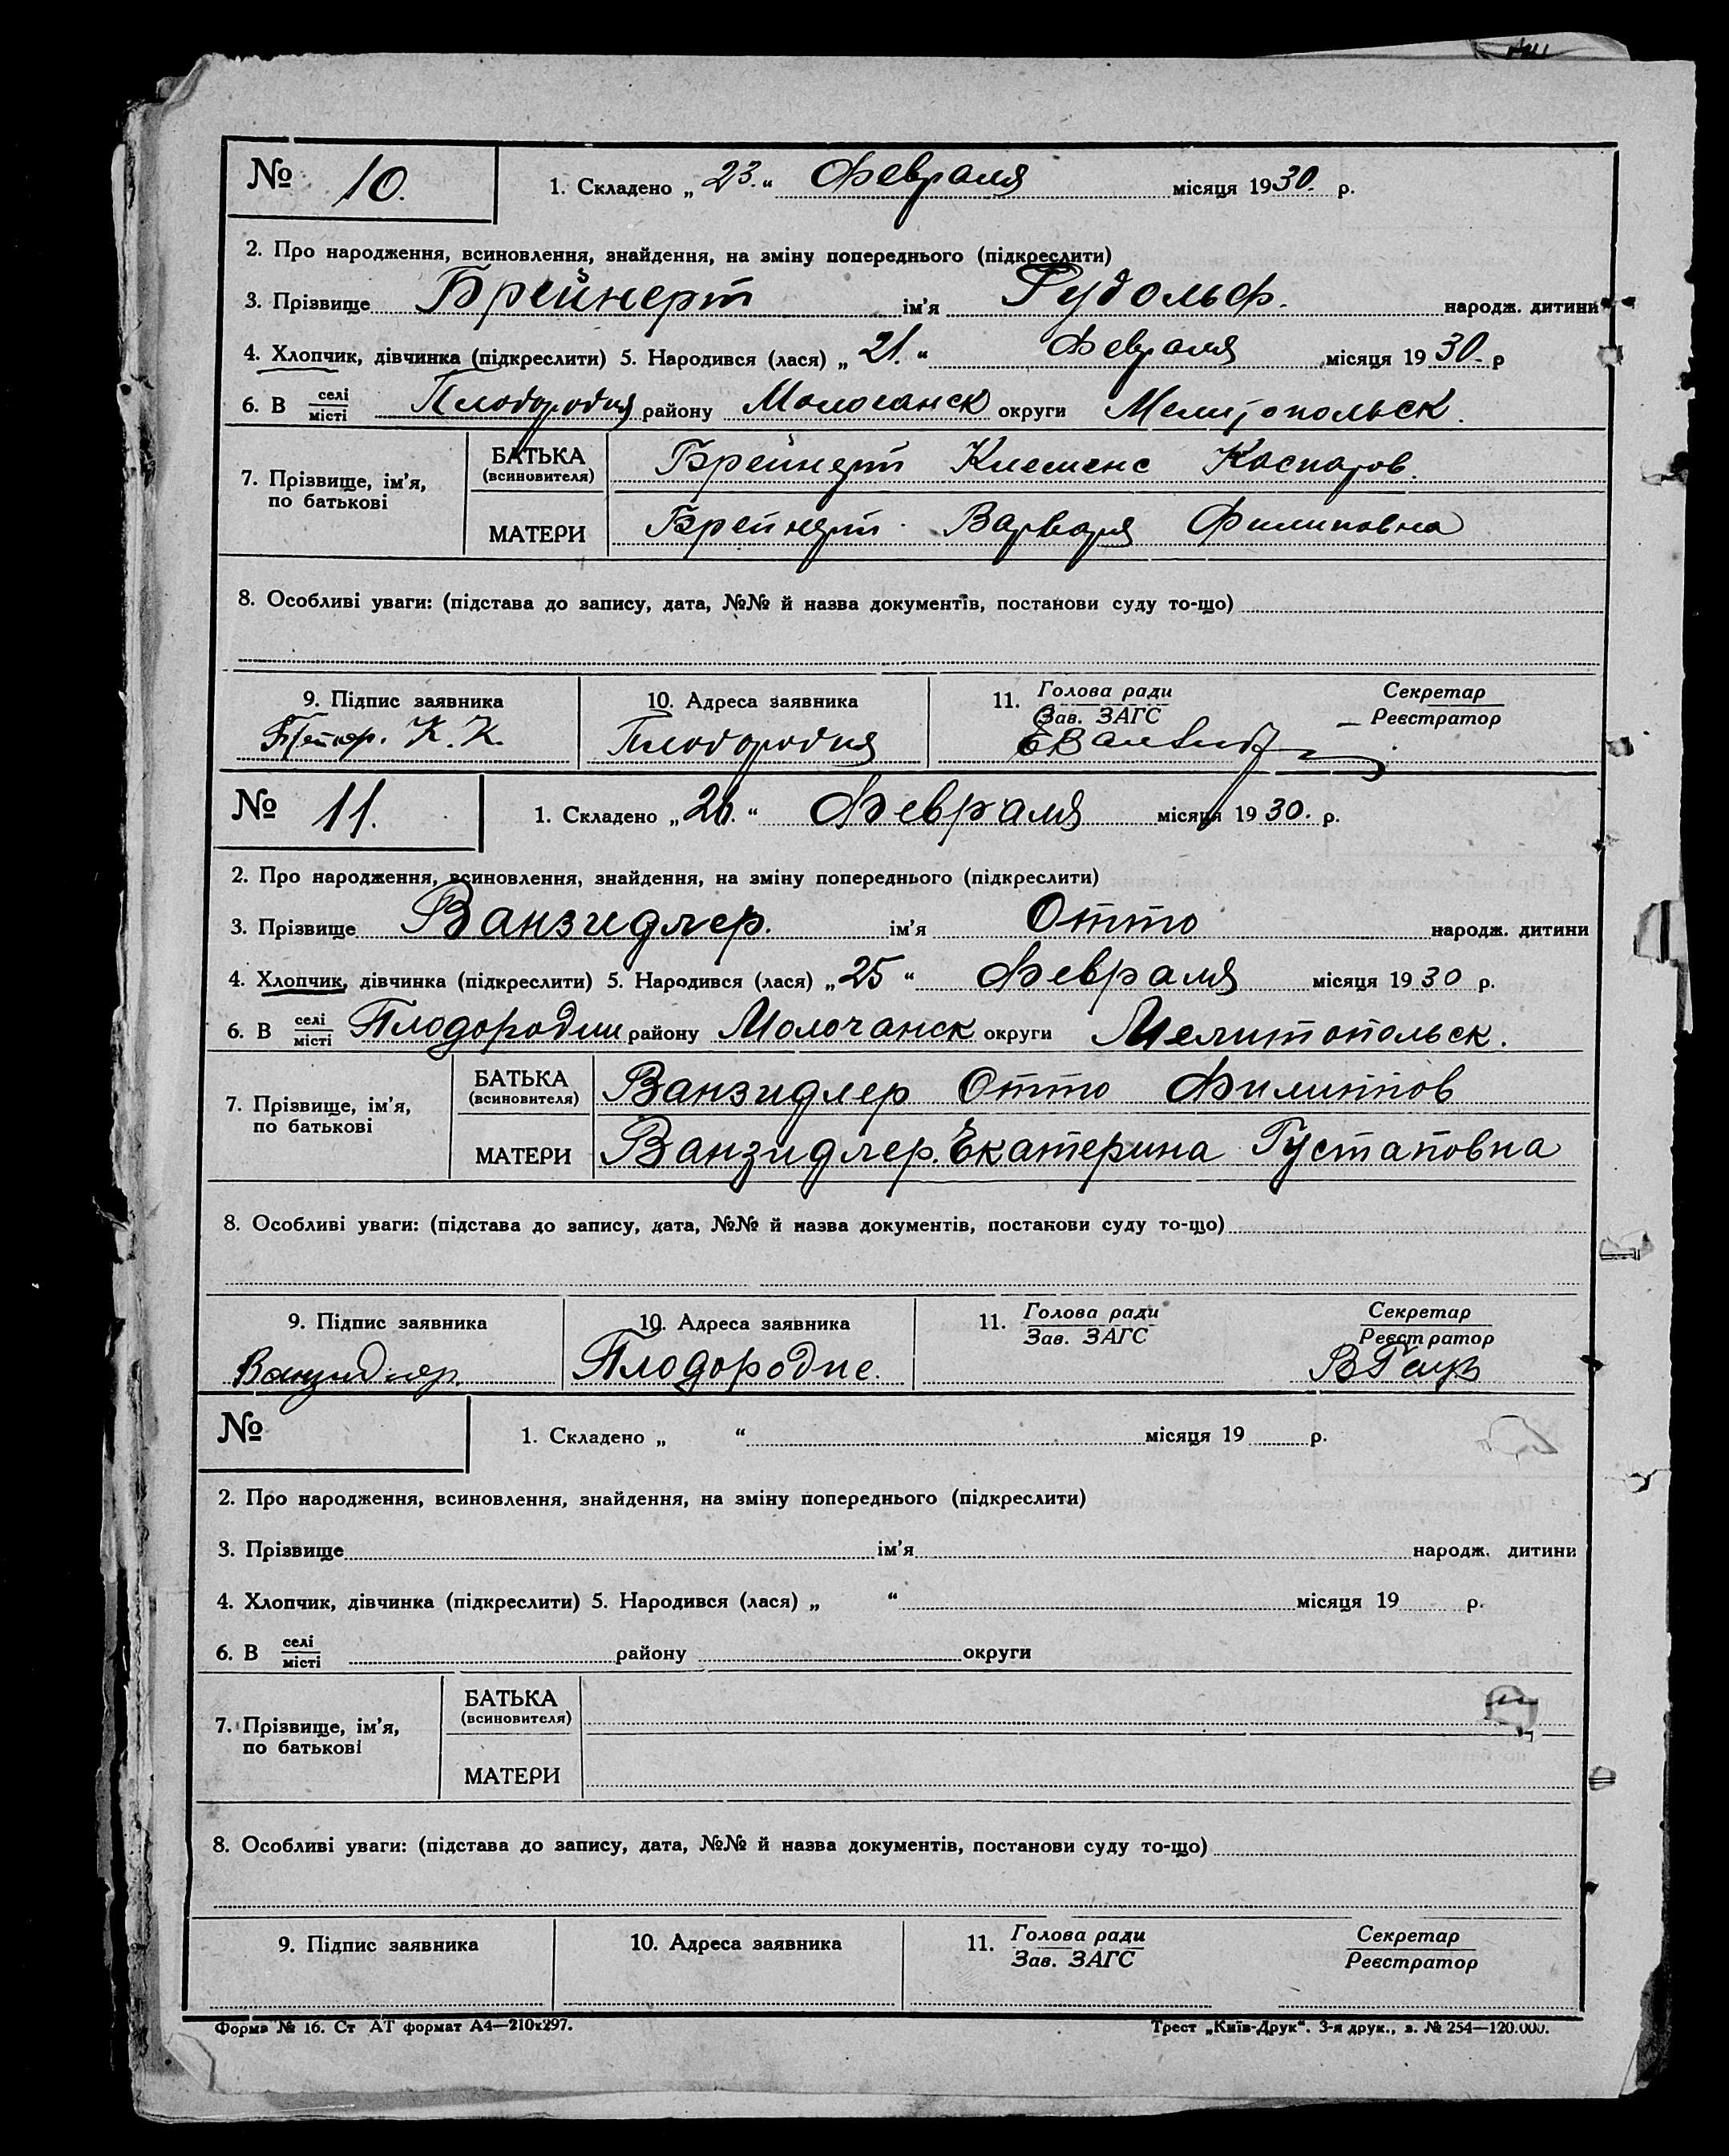 № 10.
1. Складено „ 23. “ Февраля місяця 1930. р.
2. Про народження, всиновлення, знайдення, на зміну попереднього (підкреслити)
3. Прізвище Брейнерт ім'я Рудольф. народж. дитини
4. Хлопчик, дівчинка (підкреслити) 5. Народився (лася) „ 21. “ Февраля місяця 1930. р
6. В селі місті Плодородия району Молочанск округи Мелитопольск.
7. Прізвище, ім'я, по батькові
БАТЬКА (всиновителя) Брейнерт Клеменс Каспаров.
МАТЕРИ Брейнерт Варвара Филиповна
8. Особливі уваги: (підстава до запису, дата, №№ й назва документів, постанови суду то-що)
9. Підпис заявника 10. Адреса заявника 11. Голова ради Зав. ЗАГС Секретар Реєстратор
К. К. Плодородия
№ 11.
1. Складено „ 26. “ Февраля місяця 1930. р.
2. Про народження, всиновлення, знайдення, на зміну попереднього (підкреслити)
3. Прізвище Ванзидлер. ім'я Отто народж. дитини
4. Хлопчик, дівчинка (підкреслити) 5. Народився (лася) „ 25 “ Февраля місяця 1930 р.
6. В селі місті Плодородии району Молочанск округи Мелитопольск.
7. Прізвище, ім'я, по батькові
БАТЬКА (всиновителя) Ванзидлер Отто Филиппов
МАТЕРИ Ванзидлер. Екатерина Густаповна
8. Особливі уваги: (підстава до запису, дата, №№ й назва документів, постанови суду то-що)
9. Підпис заявника 10. Адреса заявника 11. Голова ради Зав. ЗАГС Секретар Реєстратор
Ванзидлер. Плодородие.
№
1. Складено „ “ місяця 19 р.
2. Про народження, всиновлення, знайдення, на зміну попереднього (підкреслити)
3. Прізвище ім'я народж. дитини
4. Хлопчик, дівчинка (підкреслити) 5. Народився (лася) „ “ місяця 19 р.
6. В селі місті району округи
7. Прізвище, ім'я, по батькові
БАТЬКА (всиновителя)
МАТЕРИ
8. Особливі уваги: (підстава до запису, дата, №№ й назва документів, постанови суду то-що)
9. Підпис заявника 10. Адреса заявника 11. Голова ради Зав. ЗАГС Секретар Реєстратор
Форма № 16. Ст АТ формат А4—210х297. Трест „Київ-Друк“. 3-я друк., з. № 254—120.000.